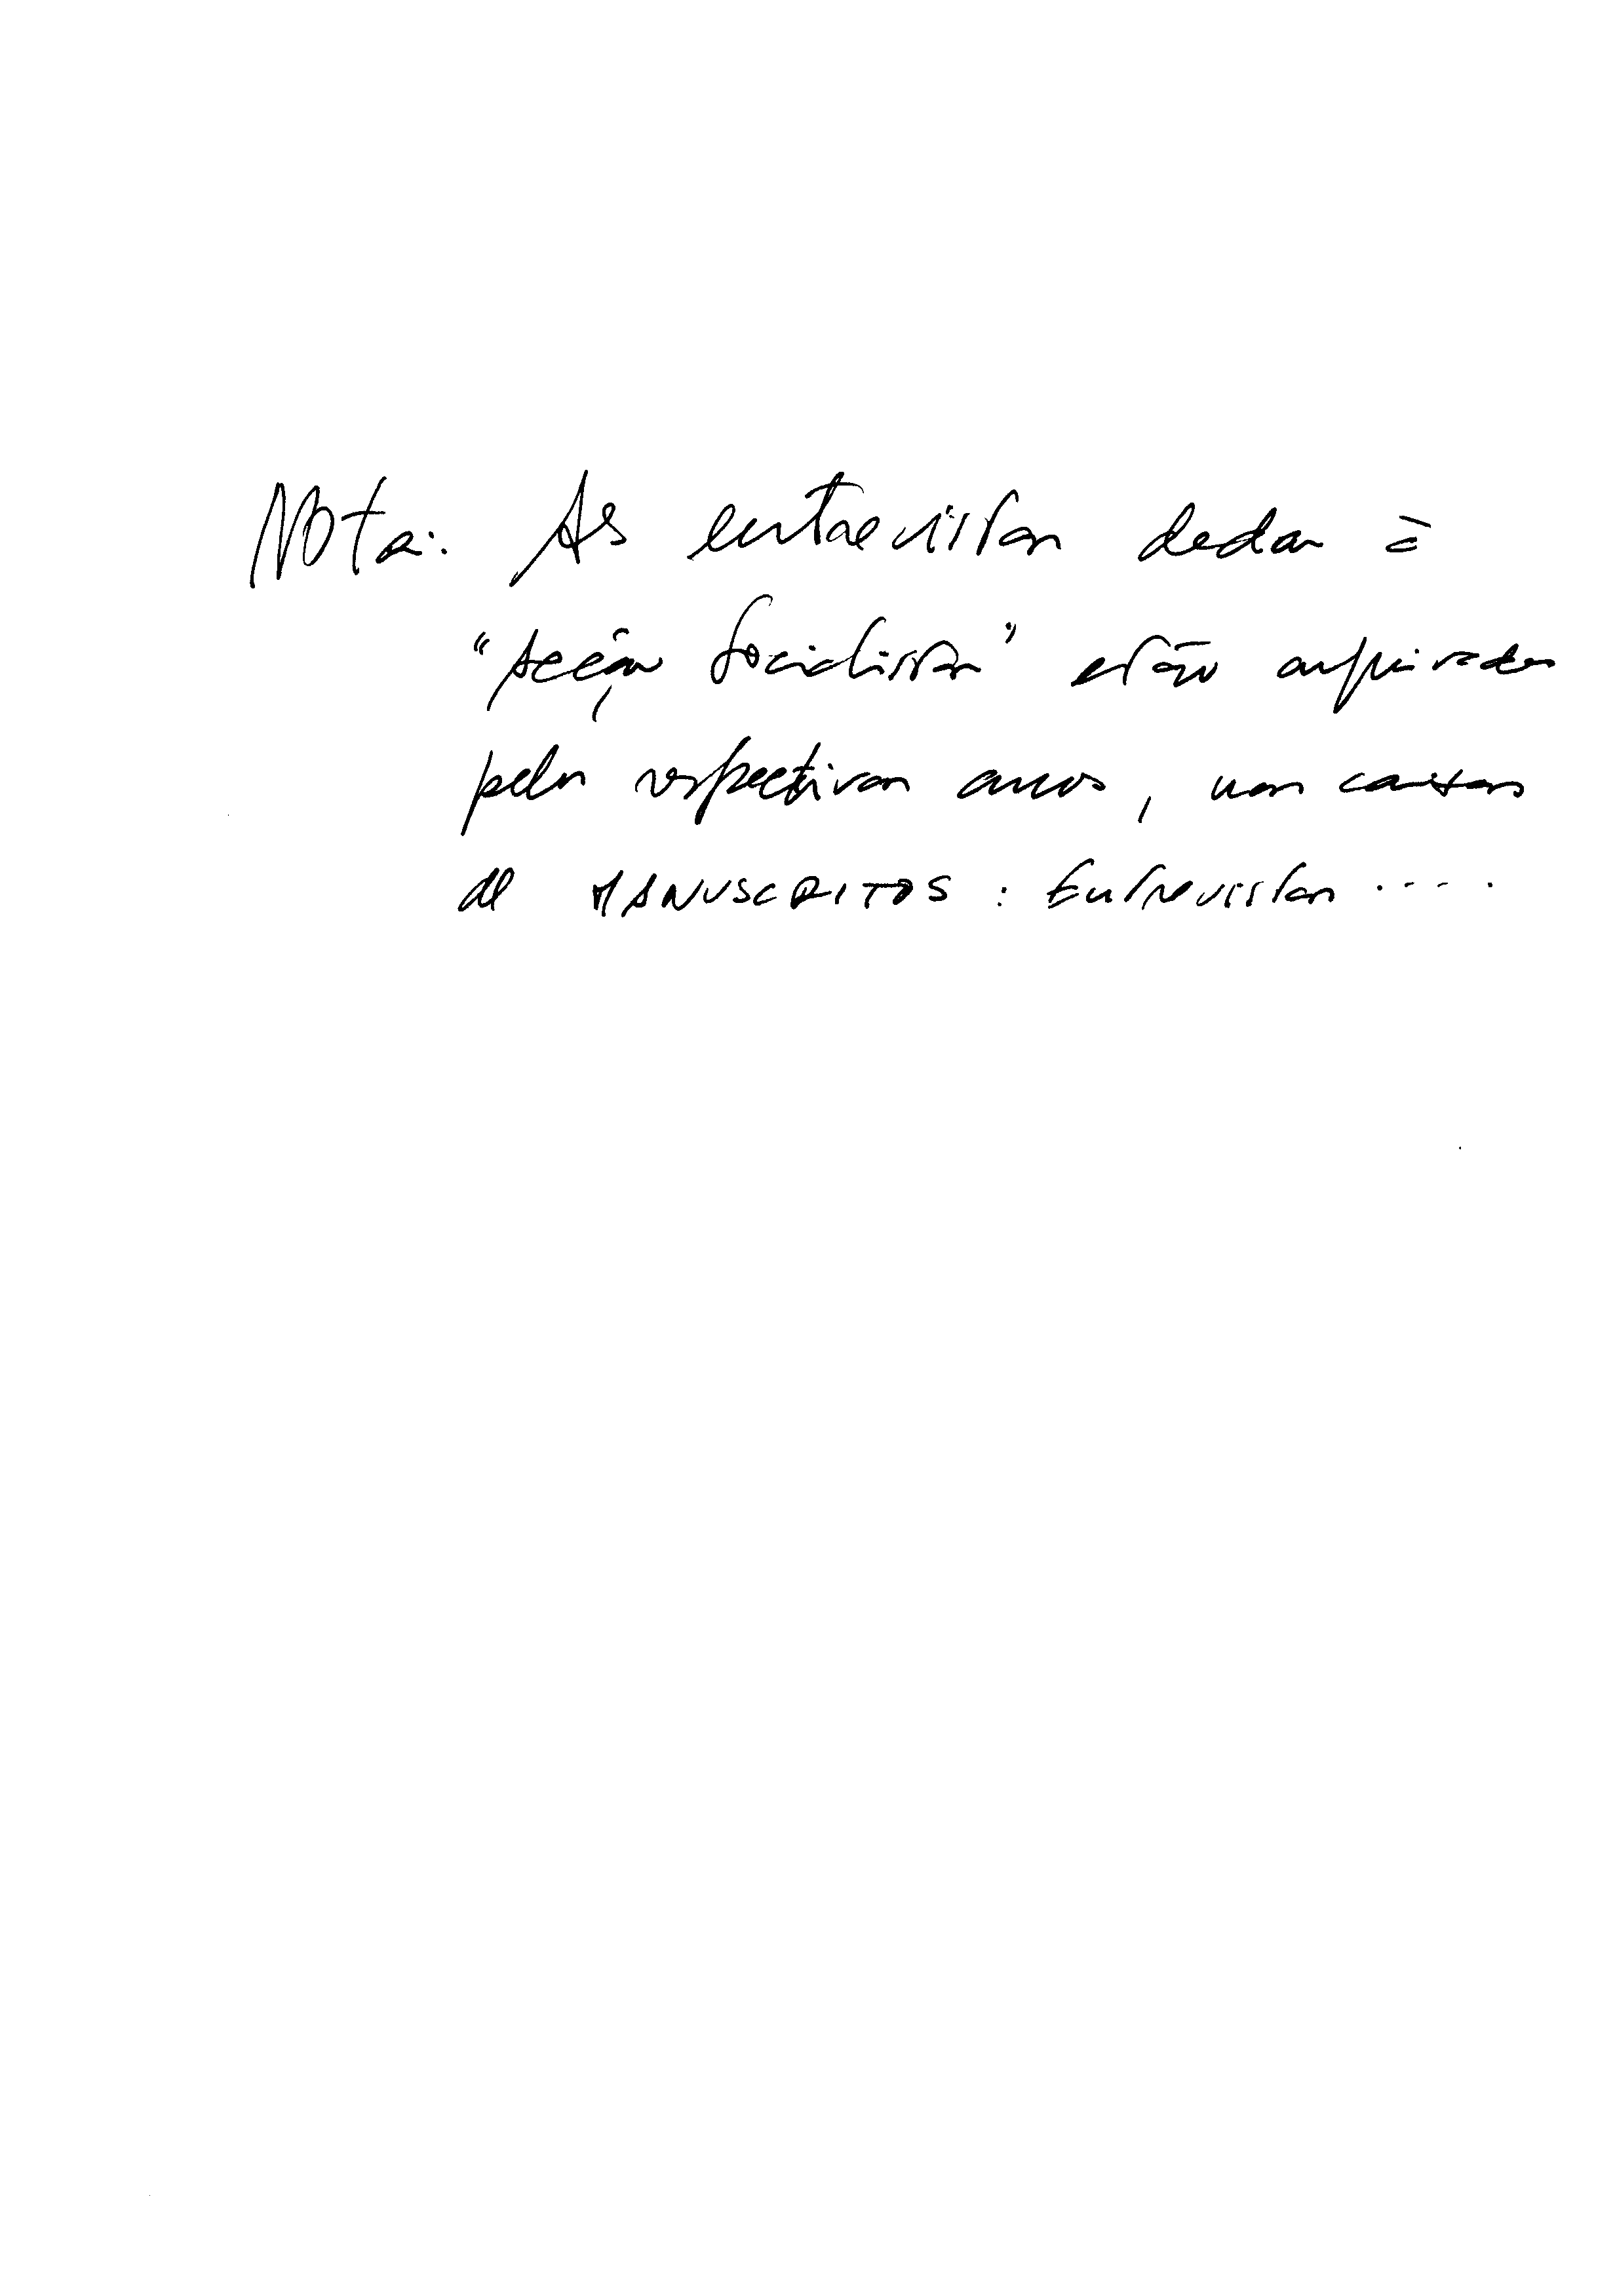 Nota: As entrevistas dadas à
"Acção Socialista" estão arquivadas
pelos respectivos anos, nas caixas
de MANUSCRITOS: Entrevistas .....